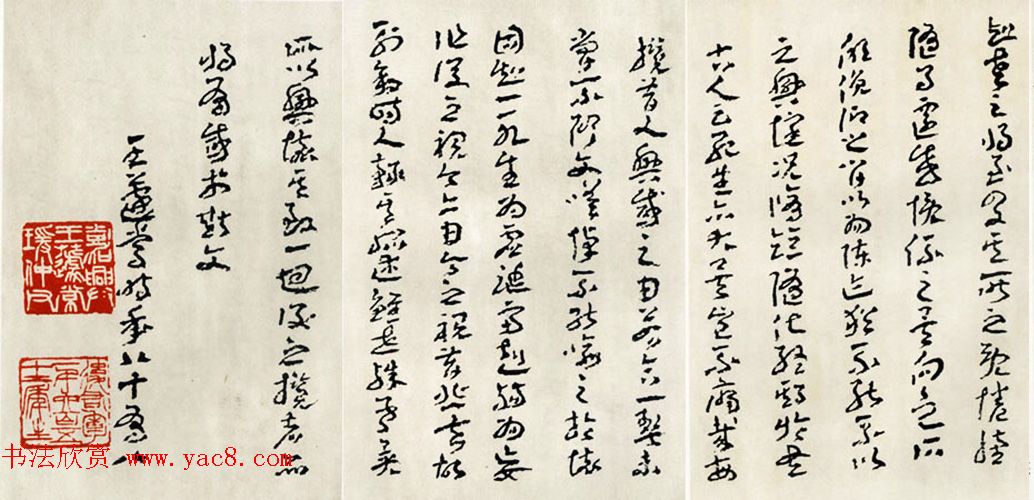 知老之將至及其所之既惓情
隨事遷感慨係之矣向之所
欣俛仰之間以為陳迹猶不能不以
之興懷況脩短隨化終期於盡
古人云死生亦大矣豈不痛哉每
攬昔人興感之由若合一契未
嘗不臨文嗟悼不能喻之於懷
固知一死生為虛誕齊彭殤為妄
作後之視今亦由今之視昔悲夫故
列敘時人錄其所述雖世殊事異
所以興懷其致一也後之攬者亦
將有感於斯文
王蘧常時年八十有八
嘉興王蘧常瑗仲父
书法欣赏 www.yac8.com